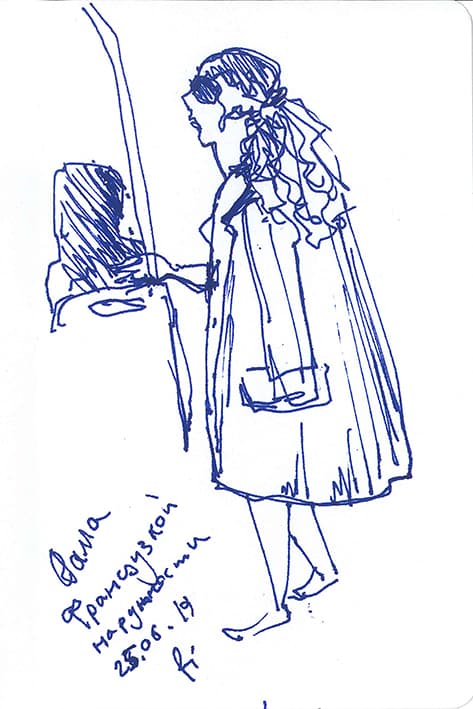 Дама
Французкой
наружности
25.06.19